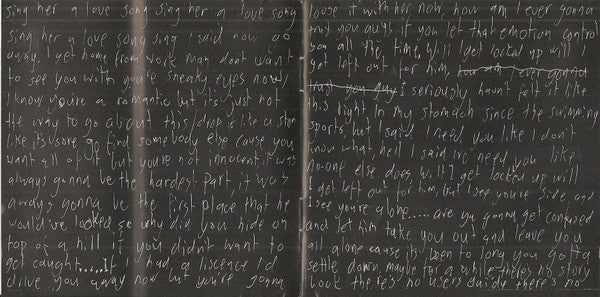 sing her a love song sing her a love song
sing her a love song sing I said now go
away, I get home from work man don't want
to see you with you're sneaky eyes now I
know you're a romantic but it's just not
the way to go about this / drop it like a stone
like it's sore go find somebody else cause you
want all of it but you're not innocent it was
always gonna be the hardest part, it was
always gonna be the first place that he
would've looked, so why did you hide on
top of a hill if you didn't want to
get caught..... If I had a liscence I'd
drive you away now but you're gonna
loose it with her now, how am I ever gonna
trust you guys if you let that emotion control
you all the time, he'll I get locked up will I
get left out for him, how am I ever gonna
trust you guys I seriously haunt felt it like
this right in my stomach since the swimming
sports, but I said I need you like I don't
know what, he'll I said I've need you like
no-one else does will I get locked up will
I get left out for him, but I see you're side, and
I see you're alone..... are you gonna get confused
and let him take you out and leave you
all alone cause its been to long you gotta
settle down, maybe for a while there's no story
look there's no users guide there's no